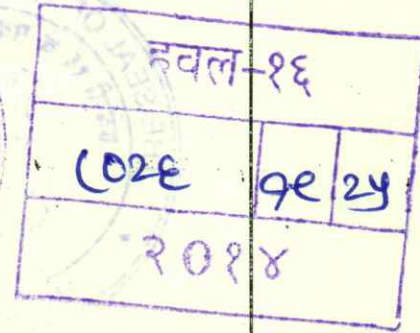 हवल-१६
८०२६ १९ २५
२०१४